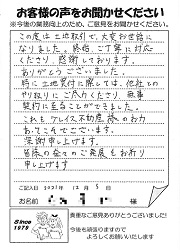 お客様の声をお聞かせください
※今後の業務向上のため、ご意見をお聞かせください
この度は土地取引で、大変お世話に
なりました。終始、ご丁寧に対応
くださり、感謝しております。
ありがとうございました。
特に土地受付に際しては、他社との
やり取りにご尽力くださり、無事
契約に至ることができました。
これもケレス不動産様のお力
あってこそでございます。
深謝申し上げます。
皆様の益々のご発展をお祈り
申し上げます
ご記入日 2021年 12月 5日
お名前 様
Since 1979
貴重なご意見ありがとうございました!
今後も頑張りますので
よろしくお願いいたします